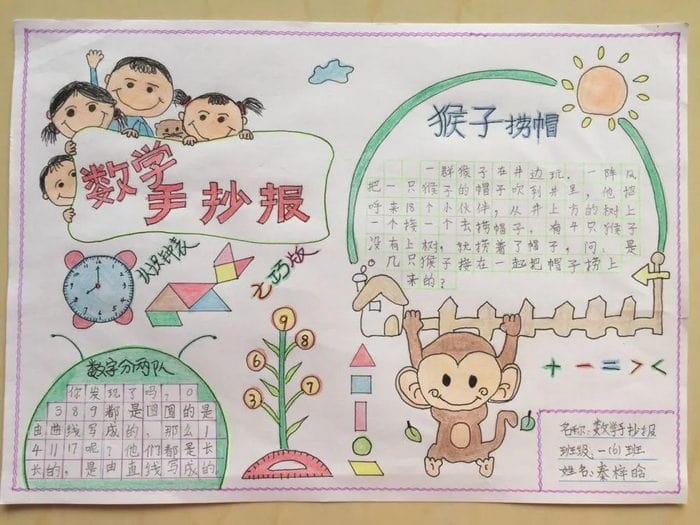 数学
手抄报
认识钟表
七巧版
数字分两队
你发现了吗，0
389都是圆圆的是
由曲线写成的，那么1
4117呢？他们都是长
长的，是由直线写成的
9
6
8
3
7
猴子捞帽
一群猴子在井边玩．一阵风
把一只猴子的帽子吹到井里，他招
呼来18个小伙伴，从井上方的树上
一个接一个去捞帽子，有4只猴子
没有上树，就捞着了帽子，问：是
几只猴子接在一起把帽子捞上
来的？
+ － = > <
名称：数学手抄报
班级：一(6)班
姓名：秦